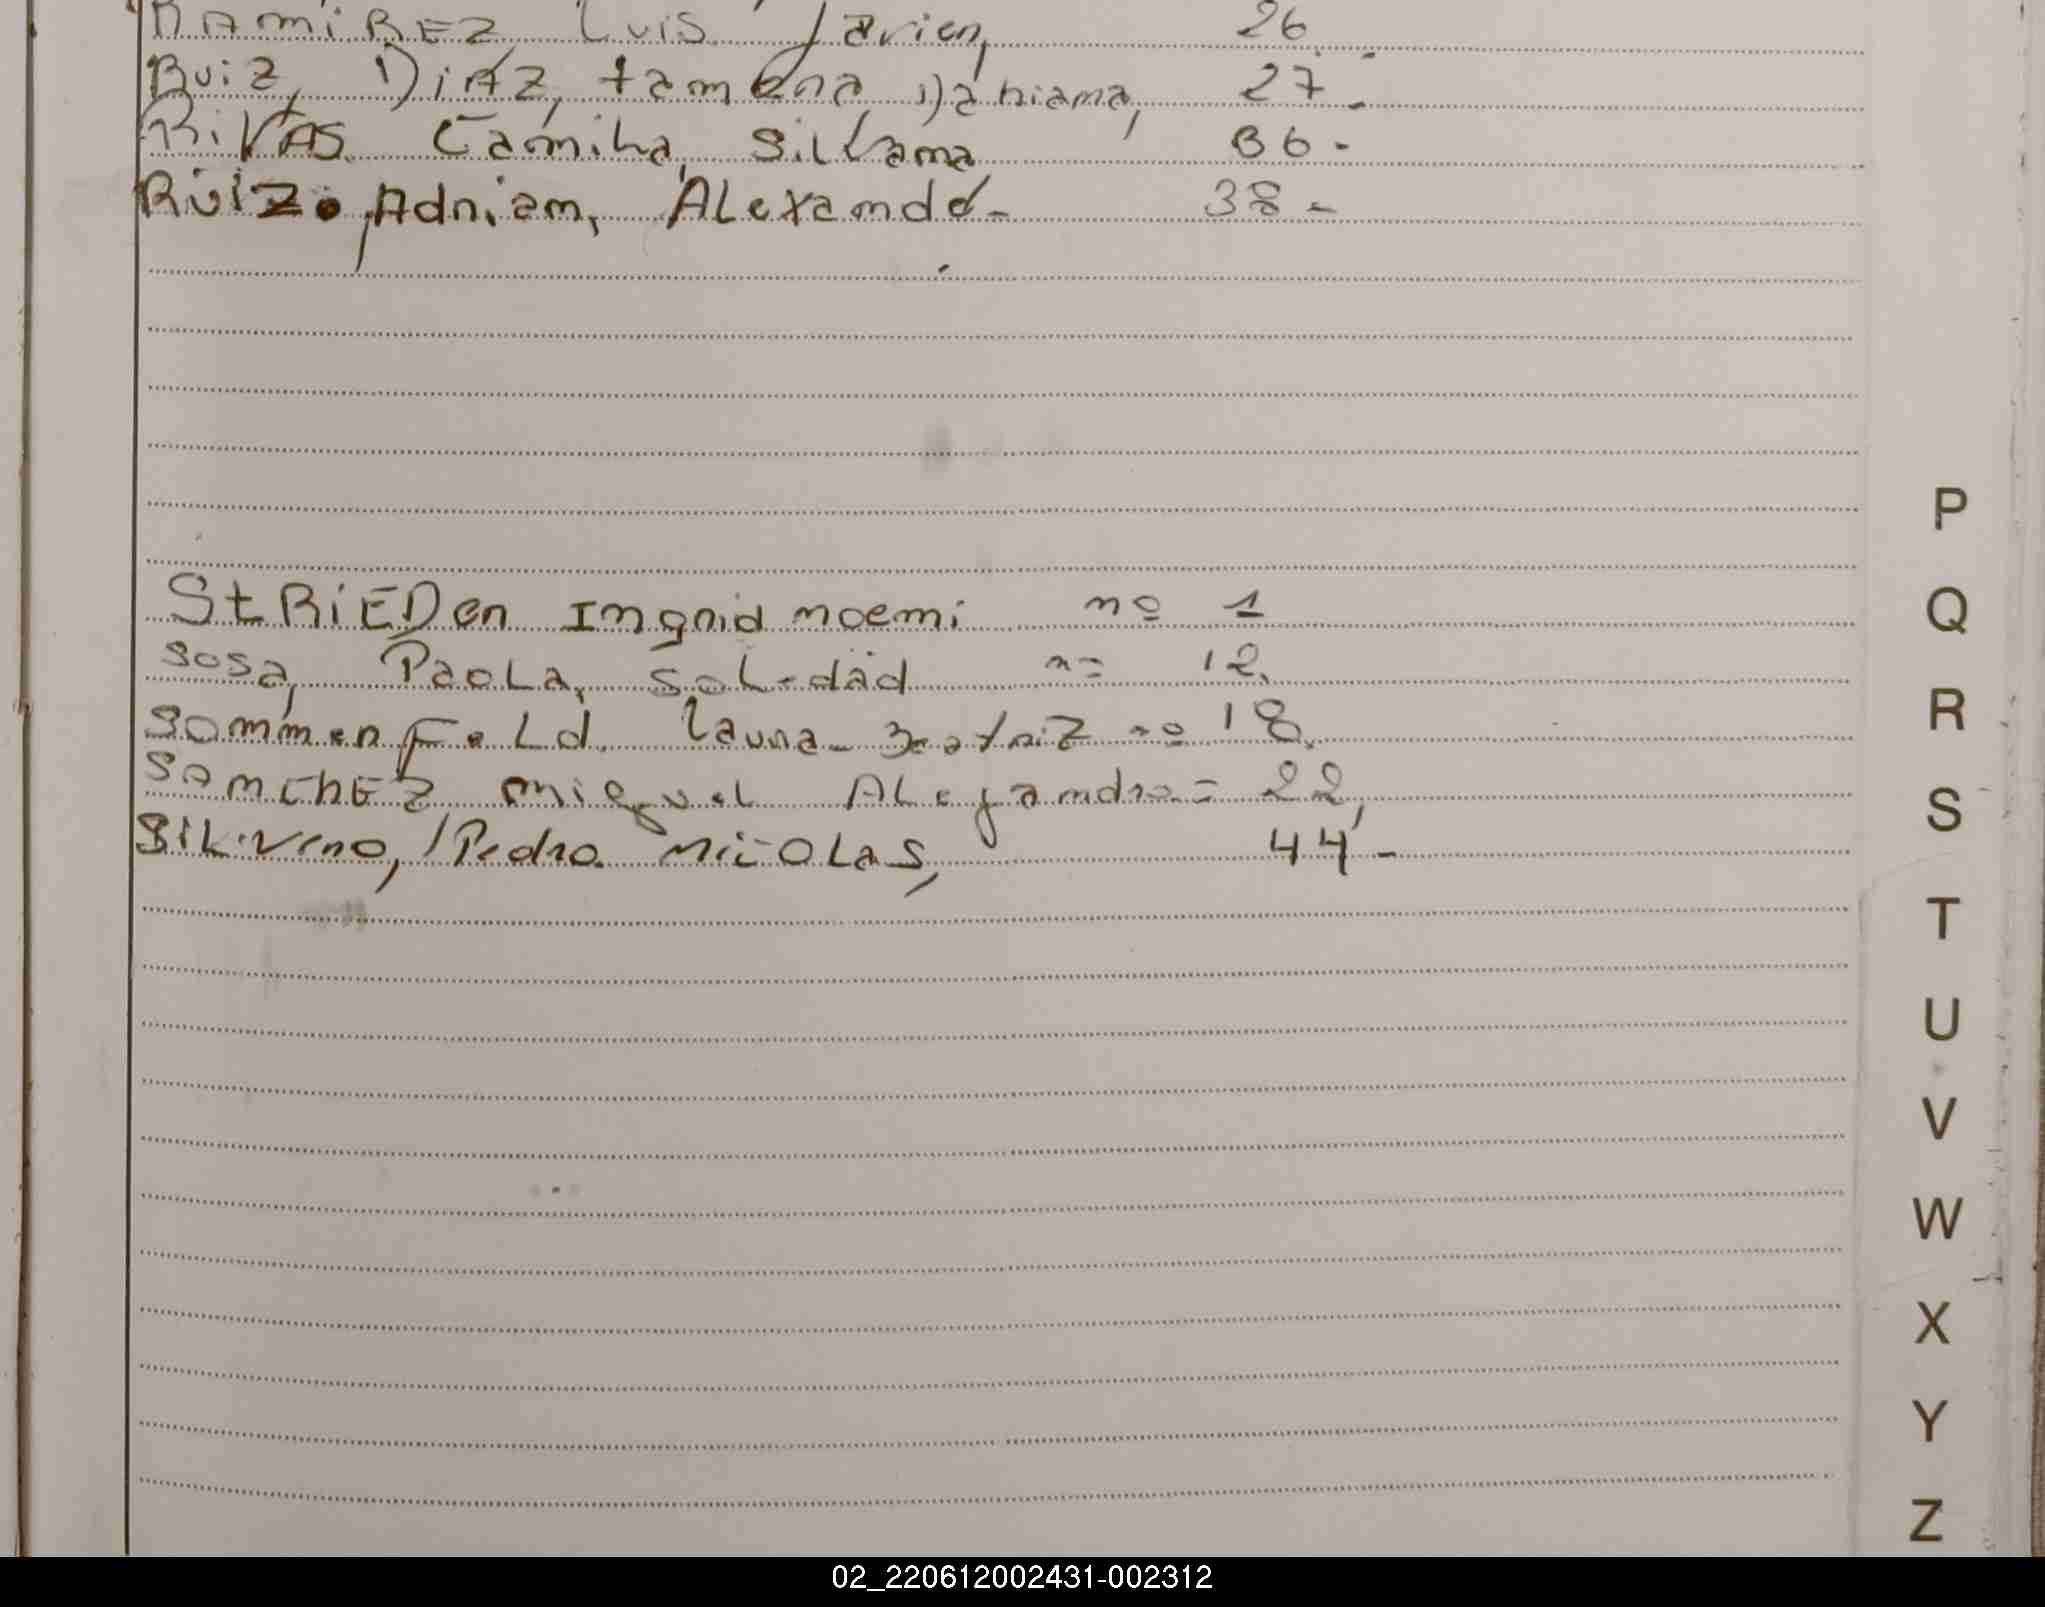 RAMiREZ Luis Javien, 26
Ruiz, DiAZ, tamena Daniama, 27.-
RiVAS. Camila Silvama 36.-
RUiZ. Adniam, ALexamdé- 38.-
StRiEDen Imgnid noemi nº 1
sosa, PaoLa, soLedad n= 12.
SommenFeLd. Launa- Beatniz nº 18.
SAmChEZ miguel ALejamdro = 22,
SiLVino, Pedro. NicOLas, 44-
P
Q
R
S
T
U
V
W
X
Y
Z
02_220612002431-002312